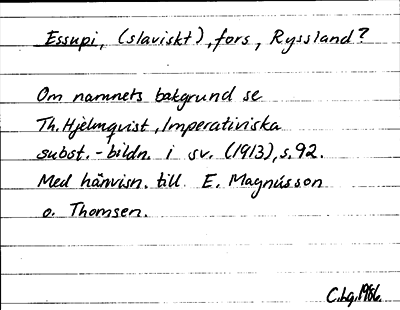 Essupi, (slaviskt), fors, Ryssland?
Om namnets bakgrund se
Th. Hjelmqvist, Imperativiska
subst.-bildn. i sv. (1913), s. 92.
Med hänvisn. till E. Magnússon
o. Thomsen.
C.hg. 1966.